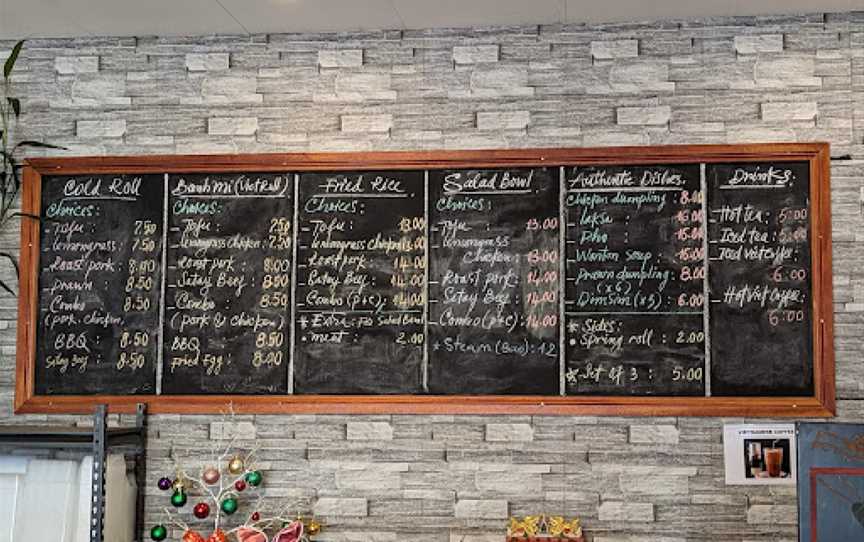 Cold Roll
Choices:
- Tofu : 7.50
- Lemongrass : 7.50
- Roast pork : 8.00
- Prawn : 8.50
- Combo : 8.50
(pork, chicken,
BBQ : 8.50
Satay Beef : 8.50
Banh Mi (Viet Roll)
Choices:
- Tofu : 7.50
- Lemongrass chicken : 7.50
- Roast pork : 8.00
- Satay Beef : 8.50
- Combo : 8.50
(pork & chicken)
BBQ : 8.50
Fried Egg : 8.00
Fried Rice
Choices:
- Tofu : 13.00
- Lemongrass chicken 13.00
- Roast pork : 14.00
- Satay Beef : 14.00
- Combo (p+c) : 14.00
* Extra: Salad Bowl
• meat : 2.00
Salad Bowl
Choices:
- Tofu : 13.00
- Lemongrass
Chicken : 13.00
- Roast pork : 14.00
- Satay Beef : 14.00
- Combo (p+c) : 14.00
* Steam (Bao) : 12
Authentic Dishes.
Chicken dumpling : 8.00
- Laksa : 15.00
- Pho : 15.00
- Wonton soup : 15.00
- Prawn dumpling : 8.00
(x6)
- Dimsim (x5) : 6.00
* Sides:
• Spring roll : 2.00
* Set of 3 : 5.00
Drinks:
- Hot tea : 5:00
- Iced tea : 5:00
- Iced Viet Coffee :
6:00
- Hot Viet Coffee :
6:00
VIETNAMESE COFFEE